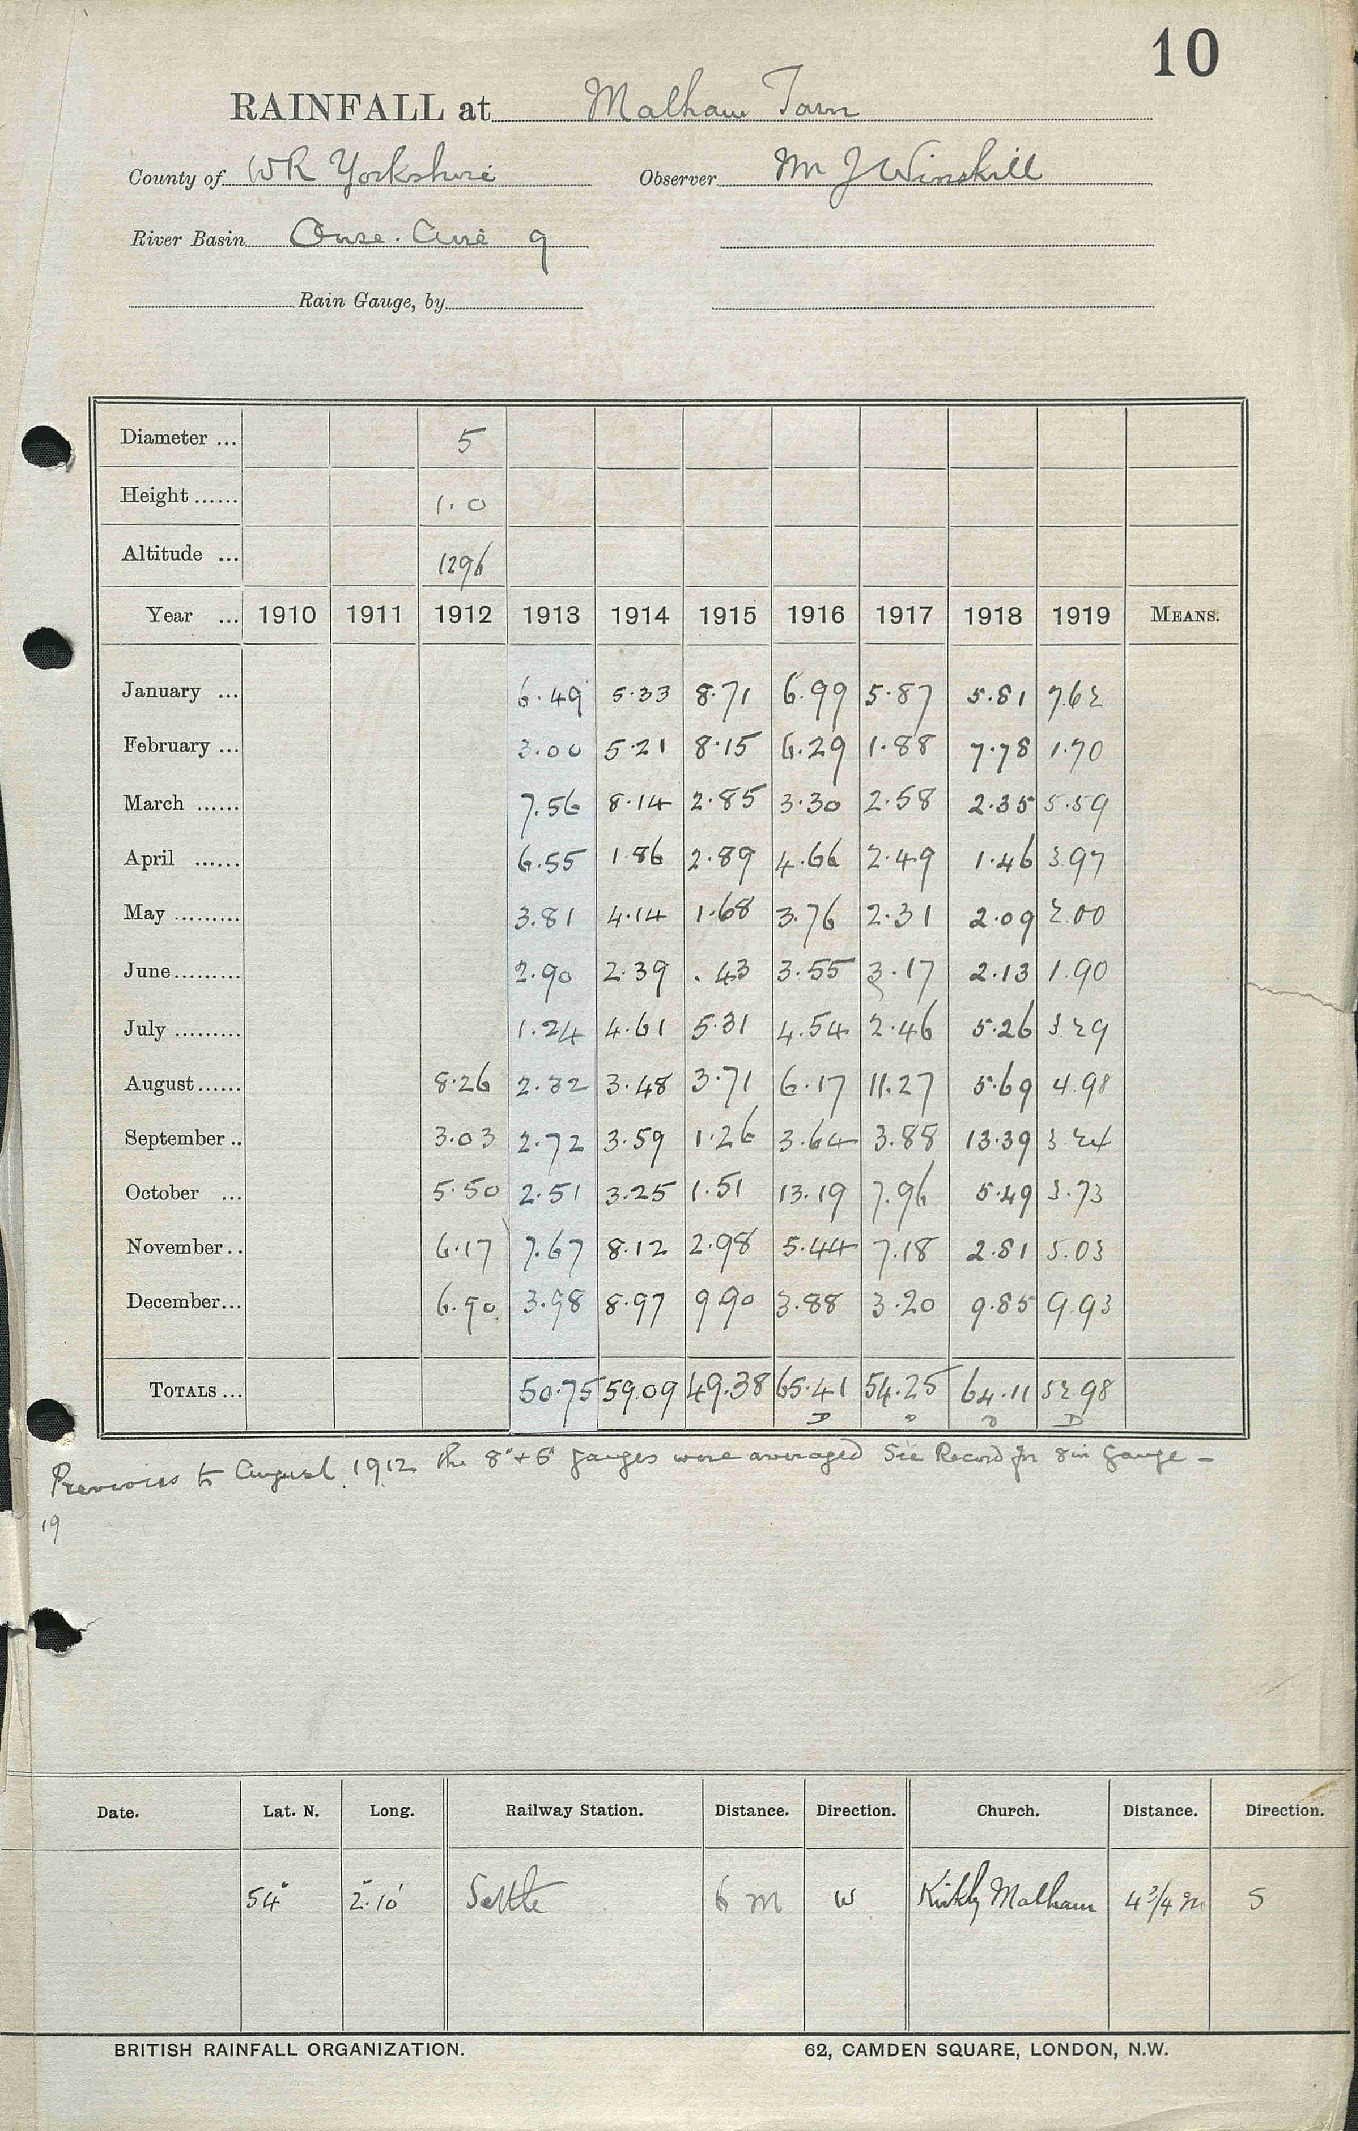 10
RAINFALL at Malham Tarn
County of WR Yorkshire Observer Mr J Winskill
River Basin Ouse. Aire 9
Rain Gauge, by
Diameter ... 5
Height ...... 1.0
Altitude ... 1296
Year ... 1910 1911 1912 1913 1914 1915 1916 1917 1918 1919 MEANS.
January ... 6.49 5.33 8.71 6.99 5.87 5.81 7.62
February ... 3.00 5.21 8.15 6.29 1.88 7.78 1.70
March ...... 7.56 8.14 2.85 3.30 2.58 2.35 5.59
April ...... 6.55 1.86 2.89 4.66 2.49 1.46 3.97
May ......... 3.81 4.14 1.68 3.76 2.31 2.09 2.00
June ......... 2.90 2.39 .43 3.55 3.17 2.13 1.90
July ......... 1.24 4.61 5.31 4.54 2.46 5.26 3.29
August ...... 8.26 2.32 3.48 3.71 6.17 11.27 5.69 4.98
September .. 3.03 2.72 3.59 1.26 3.64 3.88 13.39 3.24
October ... 5.50 2.51 3.25 1.51 13.19 7.96 5.49 3.73
November .. 6.17 7.67 8.12 2.98 5.44 7.18 2.81 5.03
December ... 6.90 3.98 8.97 9.90 3.88 3.20 9.85 9.93
TOTALS ... 50.75 59.09 49.38 65.41 54.25 64.11 52.98
D D D D
Previous to August 1912 the 8"+5" gauges were averaged See Record for 8in Gauge -
19
Date. Lat. N. Long. Railway Station. Distance. Direction. Church. Distance. Direction.
54° 2°.10' Settle 6 m W Kirkby Malham 4 3/4 m S
BRITISH RAINFALL ORGANIZATION. 62, CAMDEN SQUARE, LONDON, N.W.